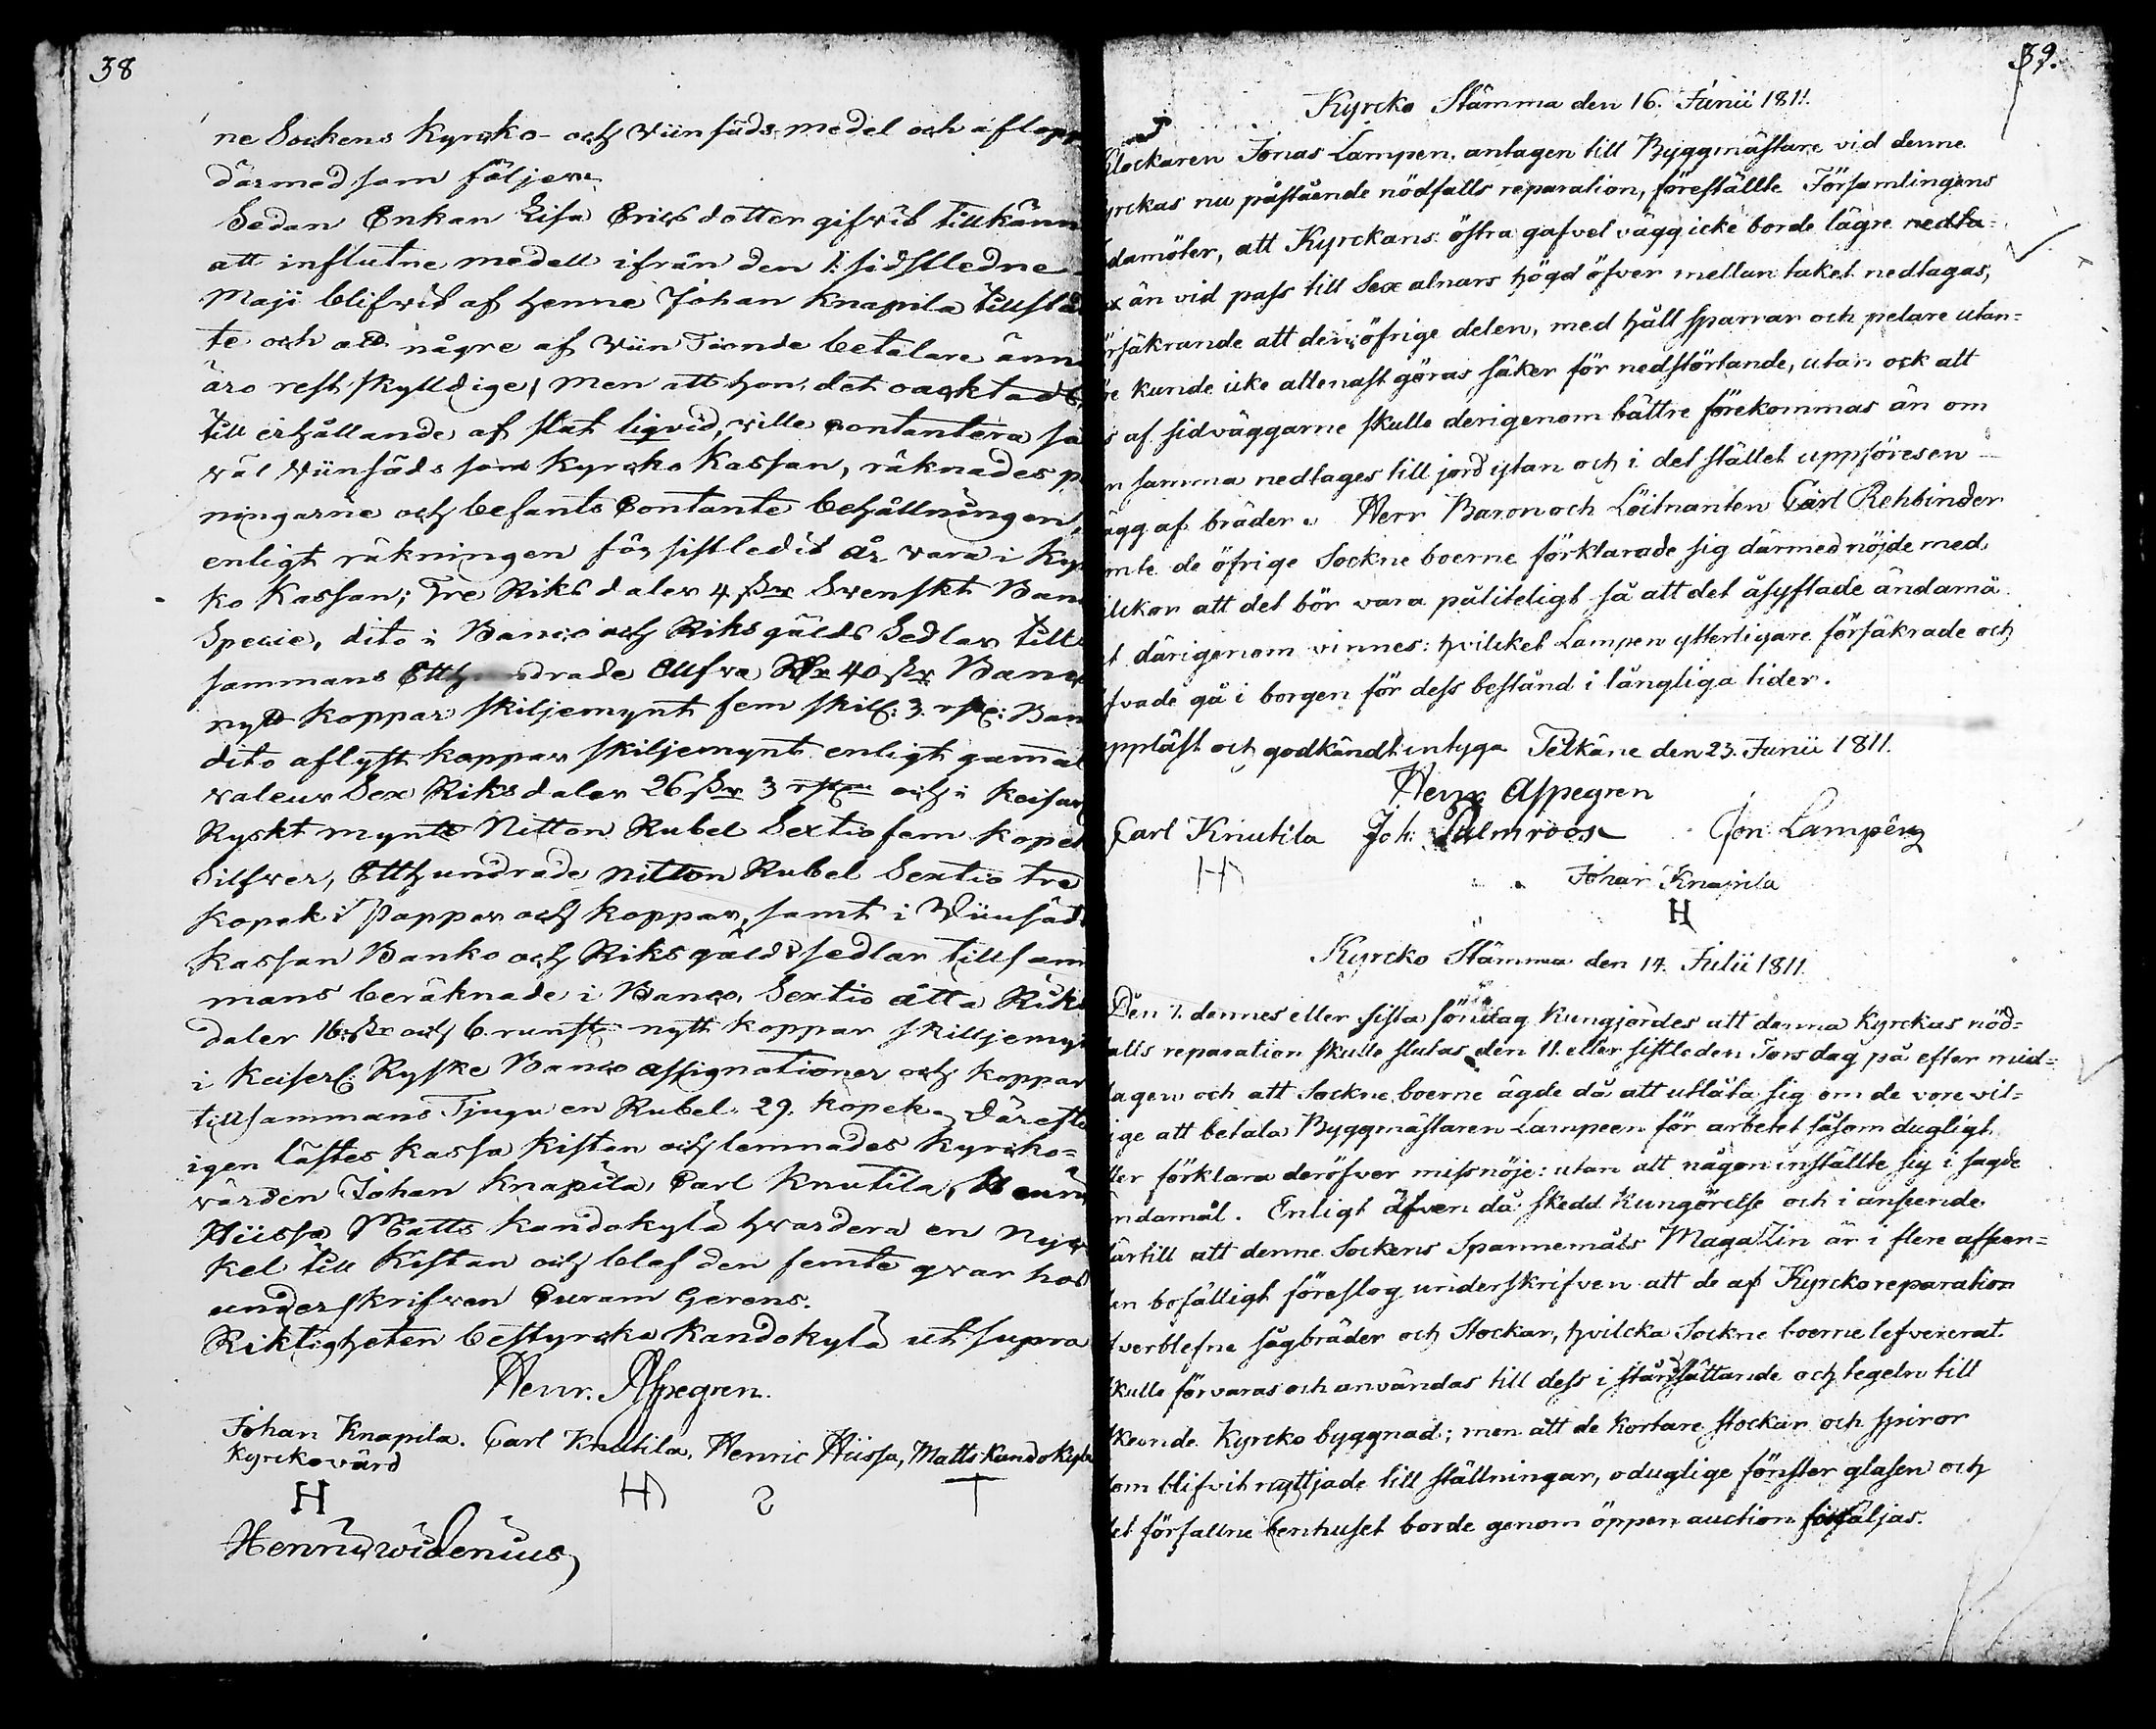 38
ne Sockens Kyrcko- och Viinsäds medel och aflopp
därmed som följer
Sedan Enkan Lisa Ericsdotter gifvit tillkänn
att influtne medell ifrån den 1: sidstledne
Maji blifvit af henne Johan Knapila tillstä
te och att någre af Viin Tionde betalare änn
äro restskylldige, men att hon, det oacktadt,
till erhållande af slut liqvid, ville contantera så
väl Viinsäds som Kyrcko Kassan, räknades p
ningarne och befants Contante behållningen,
enligt räkningen för sistledit år vara i Kyr
ko Kassan; Tre Riksdaler 4 s Svenskt Banc
Specie, dito i Banco och Riksgälds Sedlar till
sammans Etthundrade Elfva Rdr 40 s Banco
nytt koppar skiljemynt fem skill: 3. rst: Ban
dito aflyst koppar skiljemynt enligt gammal
valeur Sex Riksdaler 26 s 3 rst och i Keiserl
Ryskt mynt Nitton Rubel Sextiofem kopek
Silfver, Etthundrade nitton Rubel Sextio tre
kopek i papper och koppar, samt i Viinsäds
kassan Banko och Riksgälds sedlar tillsam
mans beräknade i Banco, Sextio åtta Riks
daler 16 s och 6. runst: nytt koppar skilljemyn
i Keiserl: Ryske Banco assignationer och koppar
tillsammans Tjuguen Rubel 29. kopek. Därefte
igen låstes kassa kistan och lemnades Kyrcko=
värden Johan Knapila, Carl Knutila, Henric
Hiissa Matts Kandokylä hvardera en nyc
kel till Kistan och blef den femte qvar hos
underskrifven Curam Gerens.
Riktigheten bestyrcka Kandokylä ut supra
Henr. Aspegren.
Johan Knapila. Carl Knutila, Henric Hiissa, Matts Kandokylä
Kyrckovärd
H H 2 T
Henric Widenius
39.
Kyrcko Stämma den 16. Junii 1811.
Clockaren Jonas Lampen, antagen till Byggmästare vid denne
yrckas nu påstående nödfalls reparation, föreställte Församlingens
damöter, att Kyrckans östra gafvel vägg icke borde lägre nedta=
x än vid pass till Sex alnars högd öfver mellantaket nedtagas,
rsäkrande att den öfrige delen, med håll sparrar och pelare utan=
re kunde icke allenast göras säker för nedstörtande, utan ock att
s af sidväggarne skulle derigenom bättre förekommas än om
n samma nedtages till jord ytan och i det stället uppföres en
ägg af bräder. Herr Baron och Löitnanten Carl Rehbinder
mte de öfrige Sockneboerne förklarade sig därmed nöjde med
ilckor att det bör vara påliteligt så att det åsyftade ändamå
t därigenom vinnes: hvilcket Lampen ytterligare försäkrade och
fvade gå i borgen för dess bestånd i långliga tider.
ppläst och godkändt intyga Pelkäne den 23. Junii 1811.
Henr Aspegren
Carl Knutila Joh: Palmroos Jon. Lampén
H Johan Knapila
H
Kyrcko Stämma den 14. Julii 1811.
Den 7. dennes eller sista söndag kungjordes att denna Kyrckas nöd=
alls reparation skulle slutas den 11. eller sistleden Torsdag på efter mid=
agen och att Sockneboerne ägde då att utlåta sig om de vore vil=
ige att betala Byggmästaren Lampeen för arbetet såsom dugligt
ller förklara deröfver missnöje: utan att någon inställte sig i sagde
ndamål. Enligt äfven då skedd kungörelse och i anseende
ärtill att denne Sockens Spannemåls Magazin är i flere afseen=
en bofälligt föreslog underskrifven att de af Kyrckoreparation
fverblefne sågbräder och Stockar, hvilcka Sockneboerne lefvererat
kulle förvaras och användas till dess i ståndsättande och tegeln till
keende Kyrcko byggnad; men att de kortare stockar och spiror
om blifvit nyttjade till ställningar, oduglige fönster glasen och
et förfallne benhuset borde genom öppen auction försäljas.